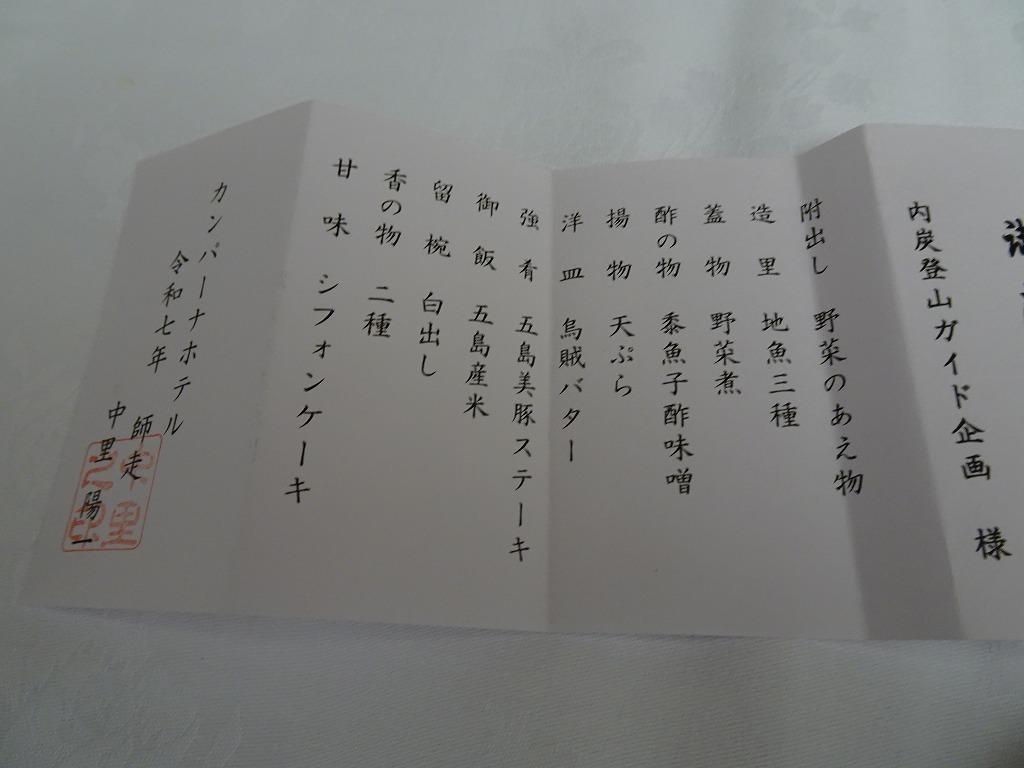 内炭登山ガイド企画 様
附出し 野菜のあえ物
造里 地魚三種
蓋物 野菜煮
酢の物 黍魚子酢味噌
揚物 天ぷら
洋皿 烏賊バター
強肴 五島美豚ステーキ
御飯 五島産米
留椀 白出し
香の物 二種
甘味 シフォンケーキ
カンパーナホテル
令和七年 師走
中里 陽一